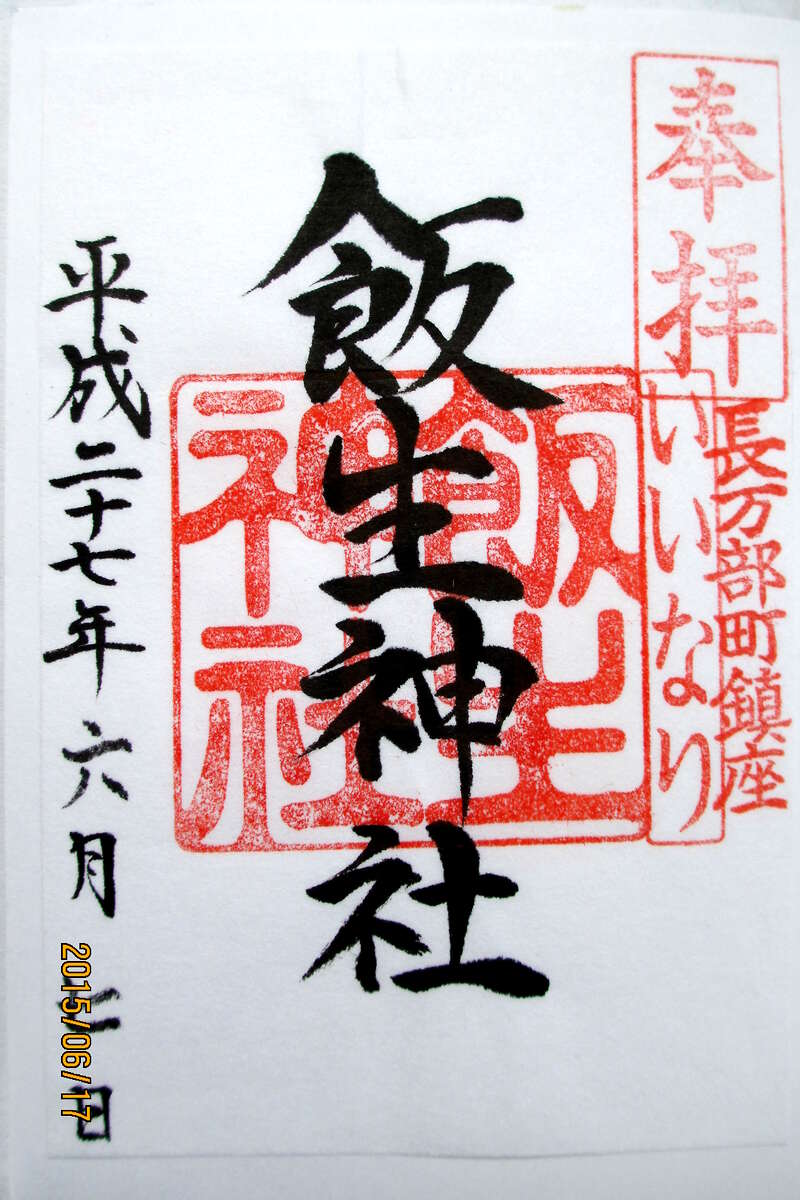 奉拝
長万部町鎮座
いいなり
飯生神社
飯生
神社
平成二十七年六月七日
2015/06/17